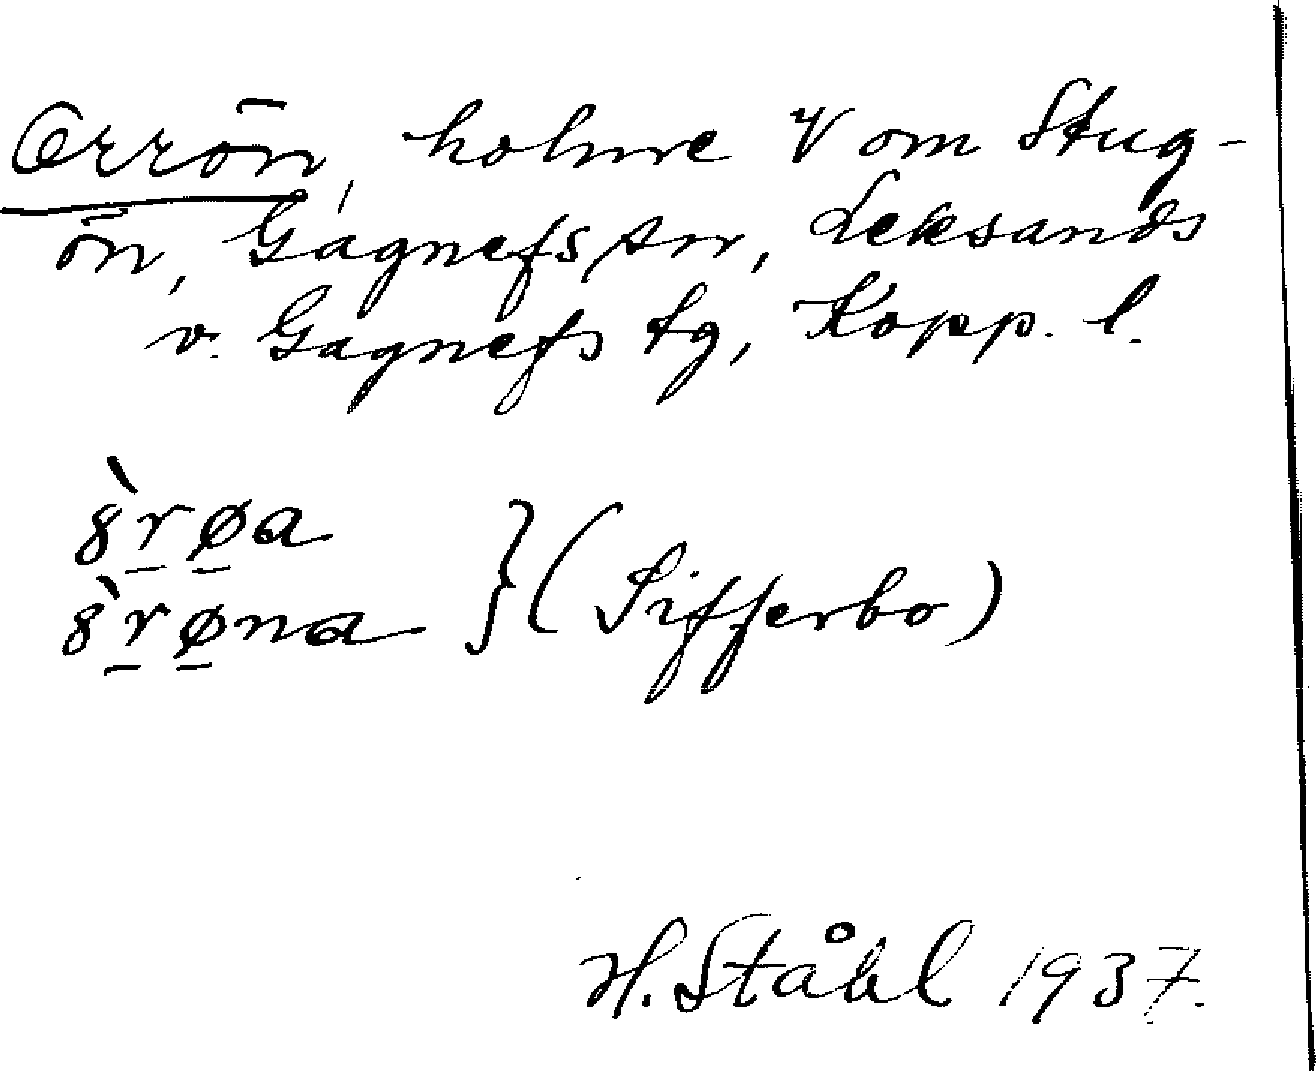 Orrön, holme V om Stug-
ön, Gagnefs sn, Leksands
o. Gagnefs tg, Kopp. l.
ȣ̀røa
ȣ̀røna } (Sifferbo)
H. Ståhl 1937.